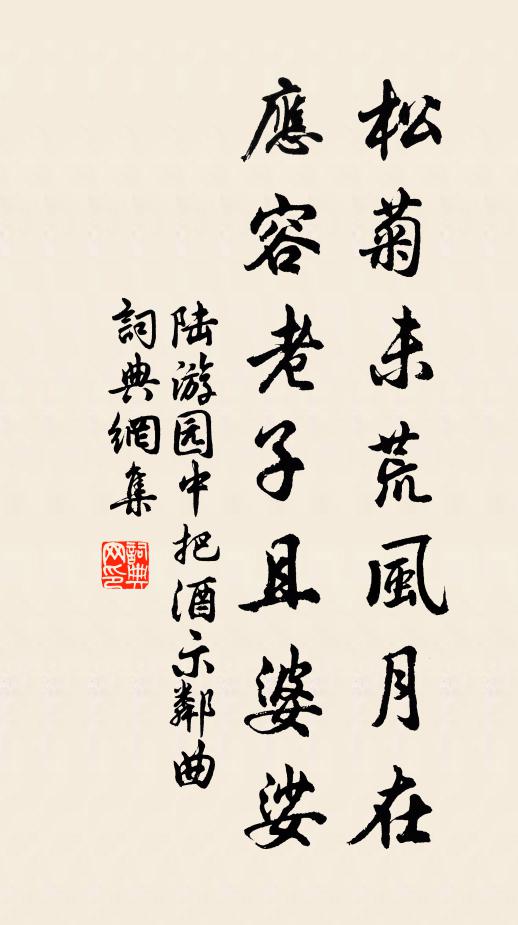 松菊未荒風月在
應容老子且婆娑
陆游园中把酒示鄰曲
詞典網集
詞典网印